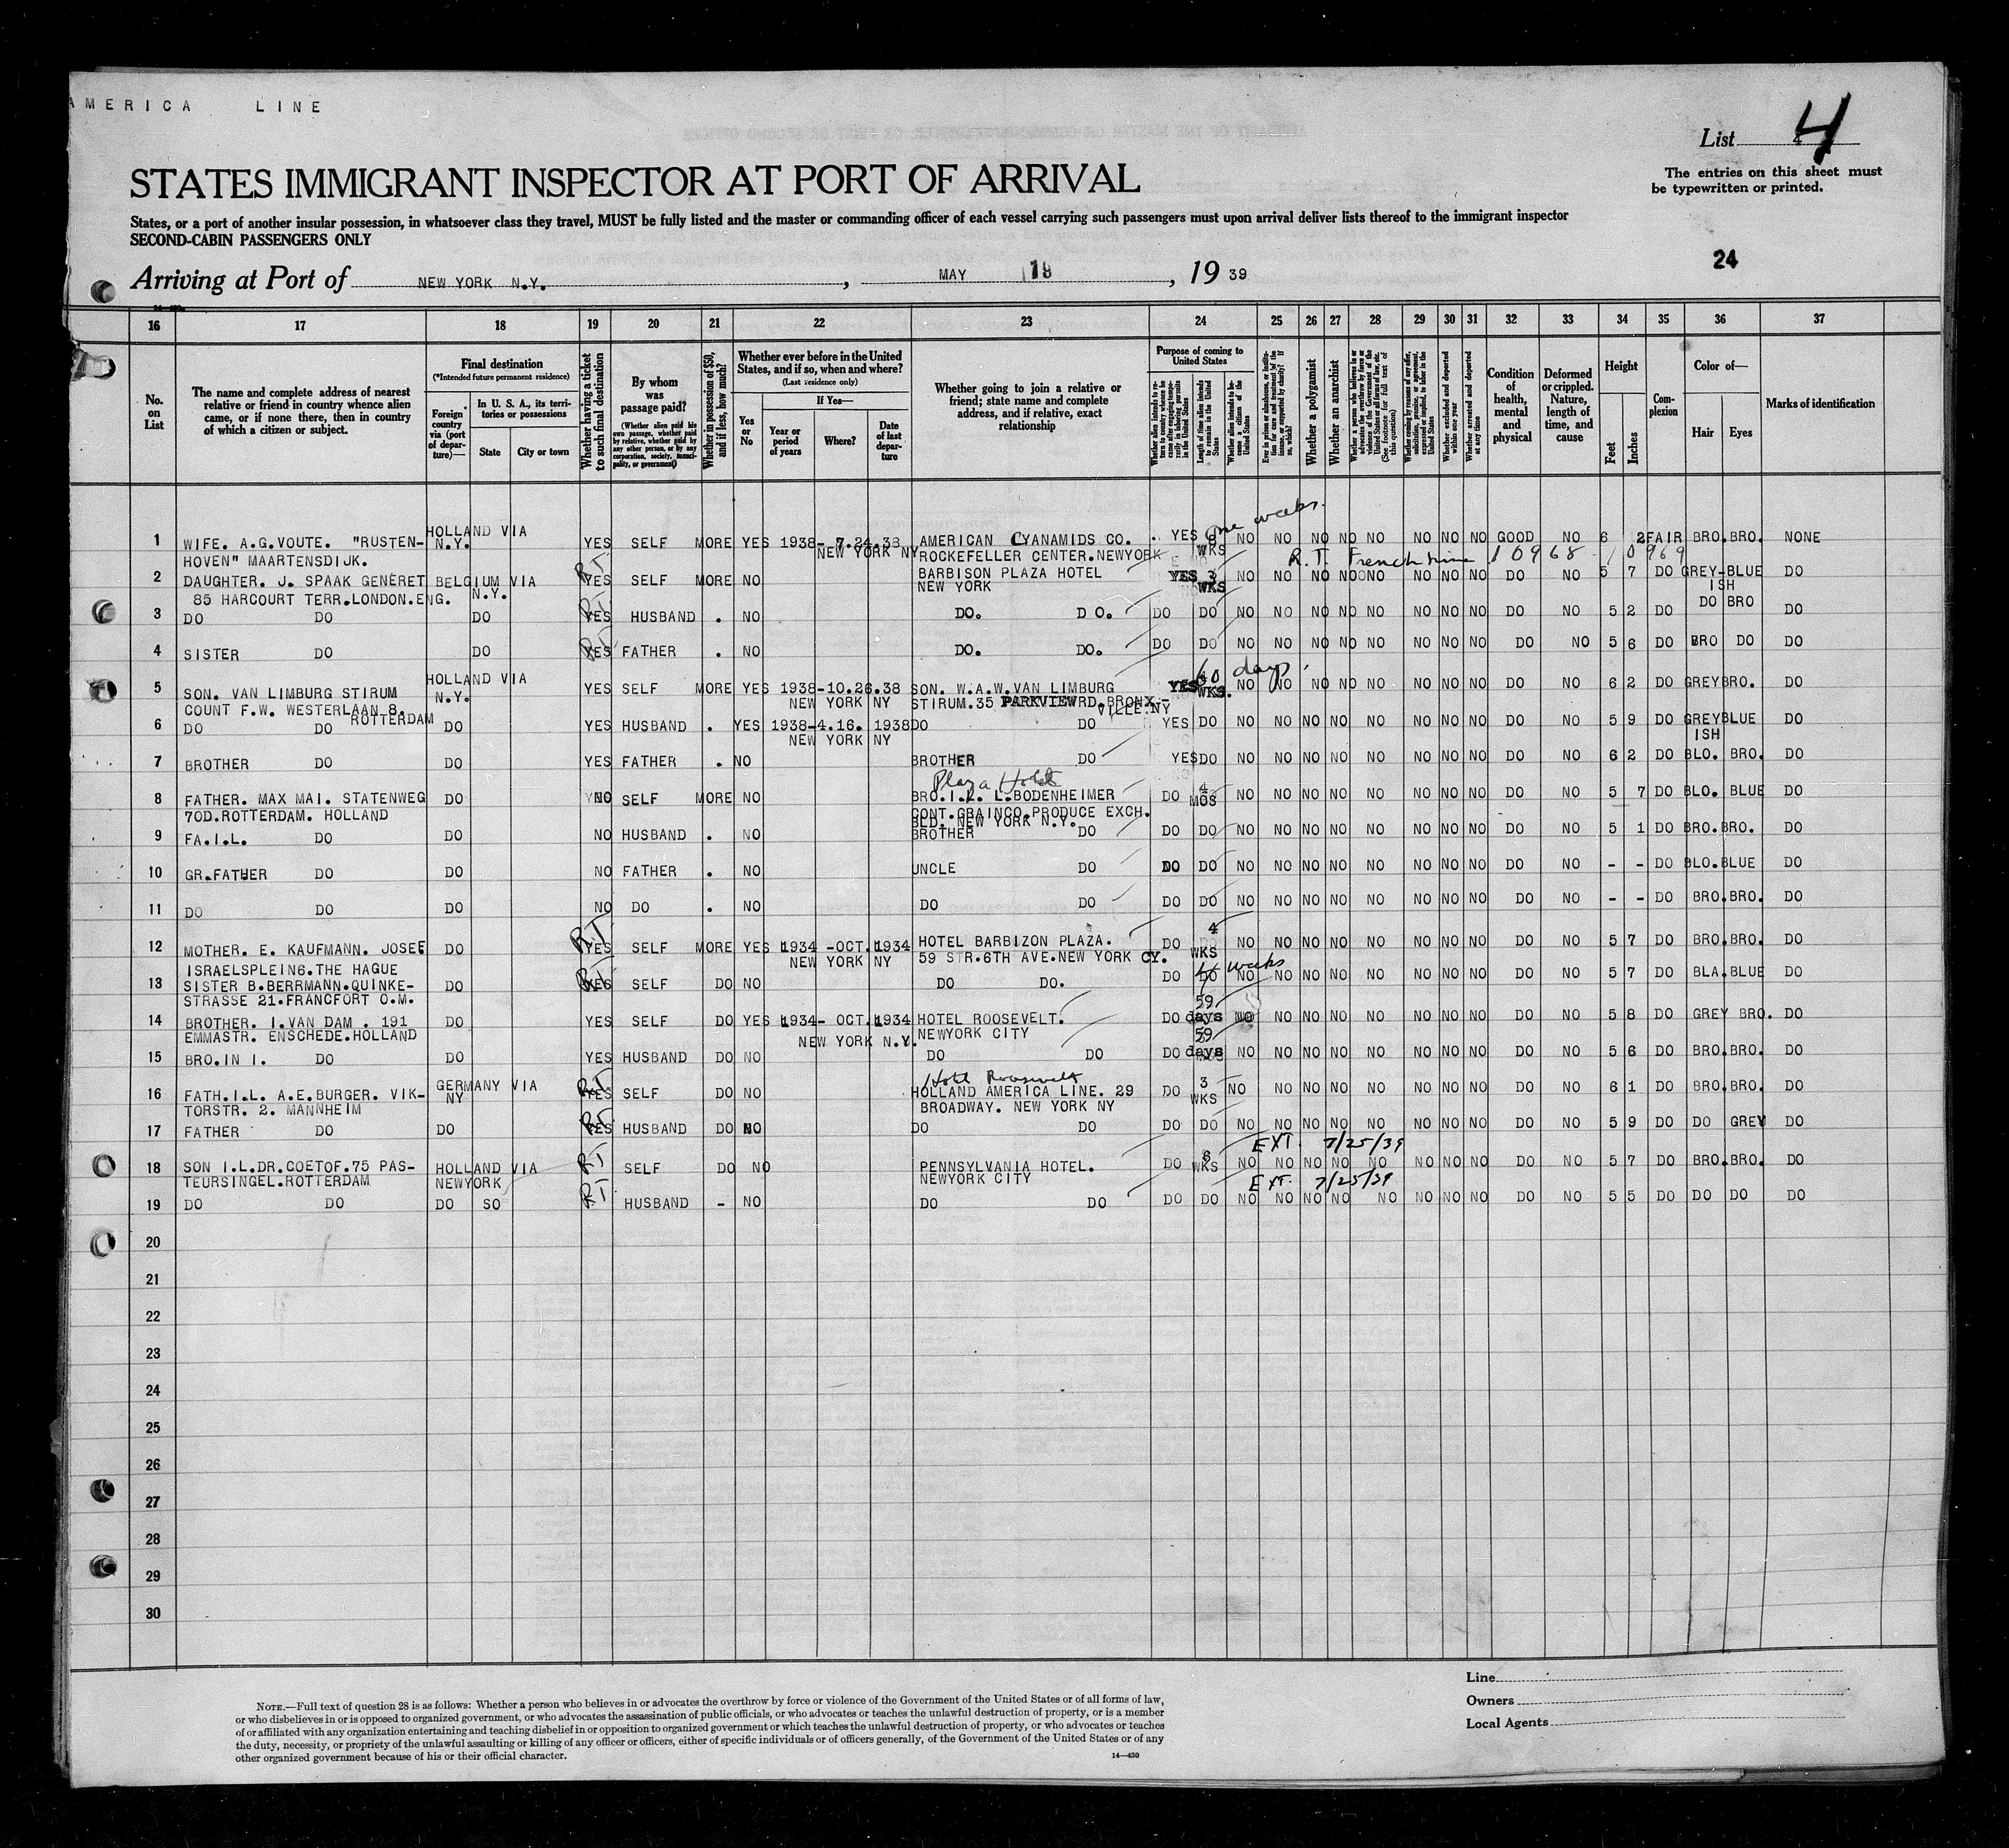 AMERICA LINE
List 4
The entries on this sheet must
be typewritten or printed.
STATES IMMIGRANT INSPECTOR AT PORT OF ARRIVAL
States, or a port of another insular possession, in whatsoever class they travel, MUST be fully listed and the master or commanding officer of each vessel carrying such passengers must upon arrival deliver lists thereof to the immigrant inspector
SECOND-CABIN PASSENGERS ONLY
24
Arriving at Port of NEW YORK N.Y. , MAY 18 , 19 39
16 17 18 19 20 21 22 23 24 25 26 27 28 29 30 31 32 33 34 35 36 37
No. on List
The name and complete address of nearest relative or friend in country whence alien came, or if none there, then in country of which a citizen or subject.
Final destination
(*Intended future permanent residence)
Foreign country via (port of departure)—
In U. S. A., its territories or possessions
State
City or town
Whether having a ticket to such final destination
By whom was passage paid?
(Whether alien paid his own passage, whether paid by relative, whether paid by any other person, or by any corporation, society, municipality, or government)
Whether in possession of $50, and if less, how much?
Whether ever before in the United States, and if so, when and where?
(Last residence only)
Yes or No
If Yes—
Year or period of years
Where?
Date of last departure
Whether going to join a relative or friend; state name and complete address, and if relative, exact relationship
Purpose of coming to United States
Whether alien intends to return to country whence he came after engaging temporarily in laboring pursuits in the United States
Length of time alien intends to remain in the United States
Whether alien intends to become a citizen of the United States
Ever in prison or almshouse, or institution for care and treatment of the insane, or supported by charity? If so, which?
Whether a polygamist
Whether an anarchist
Whether a person who believes in or advocates the overthrow by force or violence of the Government of the United States or all forms of law, etc. (See footnote for full text of this question)
Whether coming by reason of any offer, solicitation, promise, or agreement, expressed or implied, to labor in the United States
Whether excluded and deported within one year
Whether arrested and deported at any time
Condition of health, mental and physical
Deformed or crippled. Nature, length of time, and cause
Height
Feet
Inches
Complexion
Color of—
Hair
Eyes
Marks of identification
one weeks.
1 WIFE. A.G.VOUTE. "RUSTEN- HOLLAND VIA N.Y. YES SELF MORE YES 1938- 7.24.38 NEW YORK NY AMERICAN CYANAMIDS CO. YES WKS NO NO NO NO NO NO NO NO GOOD NO 6 2 FAIR BRO. BRO. NONE
HOVEN" MAARTENSDIJK. ROCKEFELLER CENTER.NEWYORK
R.T. French Line 10968 10969
2 DAUGHTER. J. SPAAK GENERET BELGIUM VIA N.Y. RT YES SELF MORE NO BARBISON PLAZA HOTEL YES 3 WKS NO NO NO NO NO NO NO NO DO NO 5 7 DO GREY-ISH BLUE DO
85 HARCOURT TERR.LONDON.ENG. NEW YORK
3 DO DO DO RT YES HUSBAND . NO DO. DO. DO DO NO NO NO NO NO NO NO NO DO NO 5 2 DO DO BRO DO
4 SISTER DO DO RT YES FATHER . NO DO. DO. DO DO NO NO NO NO NO NO NO NO DO NO 5 6 DO BRO DO DO
60 days.
5 SON. VAN LIMBURG STIRUM HOLLAND VIA N.Y. YES SELF MORE YES 1938-10.26.38 NEW YORK NY SON. W.A.W.VAN LIMBURG YES WKS. NO NO NO NO NO NO NO NO DO NO 6 2 DO GREY BRO. DO
COUNT F.W. WESTERLAAN 8 ROTTERDAM STIRUM.35 PARKVIEWRD.BRONX-VILLE.NY
6 DO DO DO YES HUSBAND . YES 1938-4.16. 1938 NEW YORK NY DO DO YES DO NO NO NO NO NO NO NO NO DO NO 5 9 DO GREYISH BLUE DO
7 BROTHER DO DO YES FATHER . NO BROTHER DO YES DO NO NO NO NO NO NO NO NO DO NO 6 2 DO BLO. BRO. DO
Plaza Hotel
8 FATHER. MAX MAI. STATENWEG DO NO SELF MORE NO BRO.I.L. L.BODENHEIMER DO 4 MOS NO NO NO NO NO NO NO NO DO NO 5 7 DO BLO. BLUE DO
70D.ROTTERDAM. HOLLAND CONT.GRAINCO.PRODUCE EXCH.
BLD. NEW YORK N.Y.
9 FA.I.L. DO DO NO HUSBAND . NO BROTHER DO DO DO NO NO NO NO NO NO NO NO DO NO 5 1 DO BRO. BRO. DO
10 GR.FATHER DO DO NO FATHER . NO UNCLE DO DO DO NO NO NO NO NO NO NO NO DO NO - - DO BLO. BLUE DO
11 DO DO DO NO DO . NO DO DO DO DO NO NO NO NO NO NO NO NO DO NO - - DO BRO. BRO. DO
12 MOTHER. E. KAUFMANN. JOSEF DO RT YES SELF MORE YES 1934 -OCT.1934 NEW YORK NY HOTEL BARBIZON PLAZA. DO 4 WKS NO NO NO NO NO NO NO NO DO NO 5 7 DO BRO. BRO. DO
ISRAELSPLEIN6.THE HAGUE 59 STR.6TH AVE.NEW YORK CY.
13 SISTER B.BERRMANN.QUINKE- DO RT YES SELF DO NO DO DO. DO 4 weeks NO NO NO NO NO NO NO NO DO NO 5 7 DO BLA. BLUE DO
STRASSE 21.FRANCFORT O.M.
14 BROTHER. I.VAN DAM . 191 DO YES SELF DO YES 1934- OCT.1934 NEW YORK N.Y. HOTEL ROOSEVELT. DO 59 days NO NO NO NO NO NO NO NO DO NO 5 8 DO GREY BRO. DO
EMMASTR. ENSCHEDE.HOLLAND NEWYORK CITY
15 BRO.IN I. DO DO YES HUSBAND DO NO DO DO DO 59 days NO NO NO NO NO NO NO NO DO NO 5 6 DO BRO. BRO. DO
Hotel Roosevelt
16 FATH.I.L. A.E.BURGER. VIK- GERMANY VIA NY RT YES SELF DO NO HOLLAND AMERICA LINE. 29 DO 3 WKS NO NO NO NO NO NO NO NO DO NO 6 1 DO BRO. BRO. DO
TORSTR. 2. MANNHEIM BROADWAY. NEW YORK NY
17 FATHER DO DO RT YES HUSBAND DO NO DO DO DO DO NO NO NO NO NO NO NO NO DO NO 5 9 DO DO GREY DO
EXT. 7/25/39
18 SON I.L.DR.COETOF.75 PAS- HOLLAND VIA NEWYORK RT SELF DO NO PENNSYLVANIA HOTEL. DO 8 WKS NO NO NO NO NO NO NO NO DO NO 5 7 DO BRO. BRO. DO
TEURSINGEL.ROTTERDAM NEWYORK CITY
EXT. 7/25/39
19 DO DO DO SO RT HUSBAND - NO DO DO DO DO NO NO NO NO NO NO NO NO DO NO 5 5 DO DO DO DO
20
21
22
23
24
25
26
27
28
29
30
Line
Owners
Local Agents
NOTE.—Full text of question 28 is as follows: Whether a person who believes in or advocates the overthrow by force or violence of the Government of the United States or of all forms of law,
or who disbelieves in or is opposed to organized government, or who advocates the assassination of public officials, or who advocates or teaches the unlawful destruction of property, or is a member
of or affiliated with any organization entertaining and teaching disbelief in or opposition to organized government or which teaches the unlawful destruction of property, or who advocates or teaches
the duty, necessity, or propriety of the unlawful assaulting or killing of any officer or officers, either of specific individuals or of officers generally, of the Government of the United States or of any
other organized government because of his or their official character.
14—430